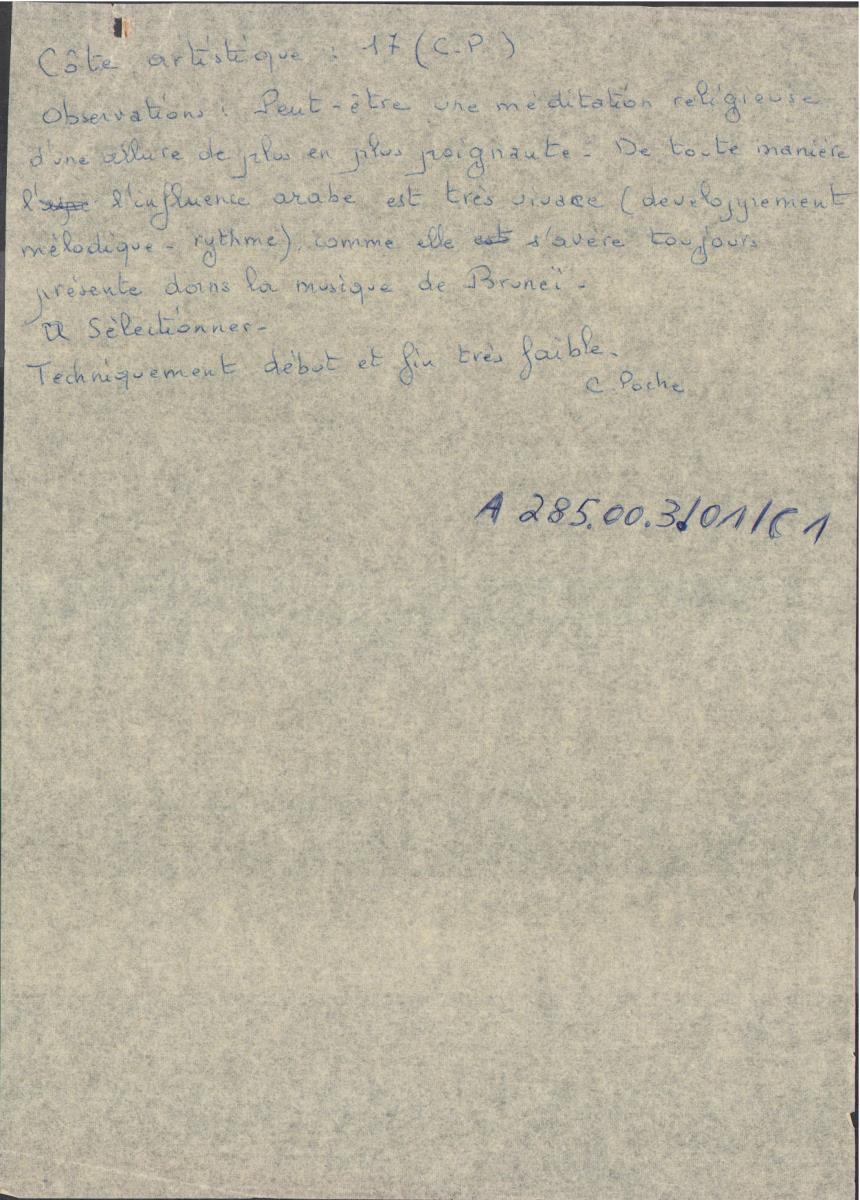 Côte artistique : 17 (C.P.)
Observations : Peut-être une méditation religieuse
d'une allure de plus en plus poignante - De toute manière
l' l'influence arabe est très vivace (developpement
mélodique - rythme), comme elle est s'avère toujours
présente dans la musique de Bruneï -
A Sélectionner -
Techniquement début et fin très faible.
C. Poche
A 285.00.3/01/C1